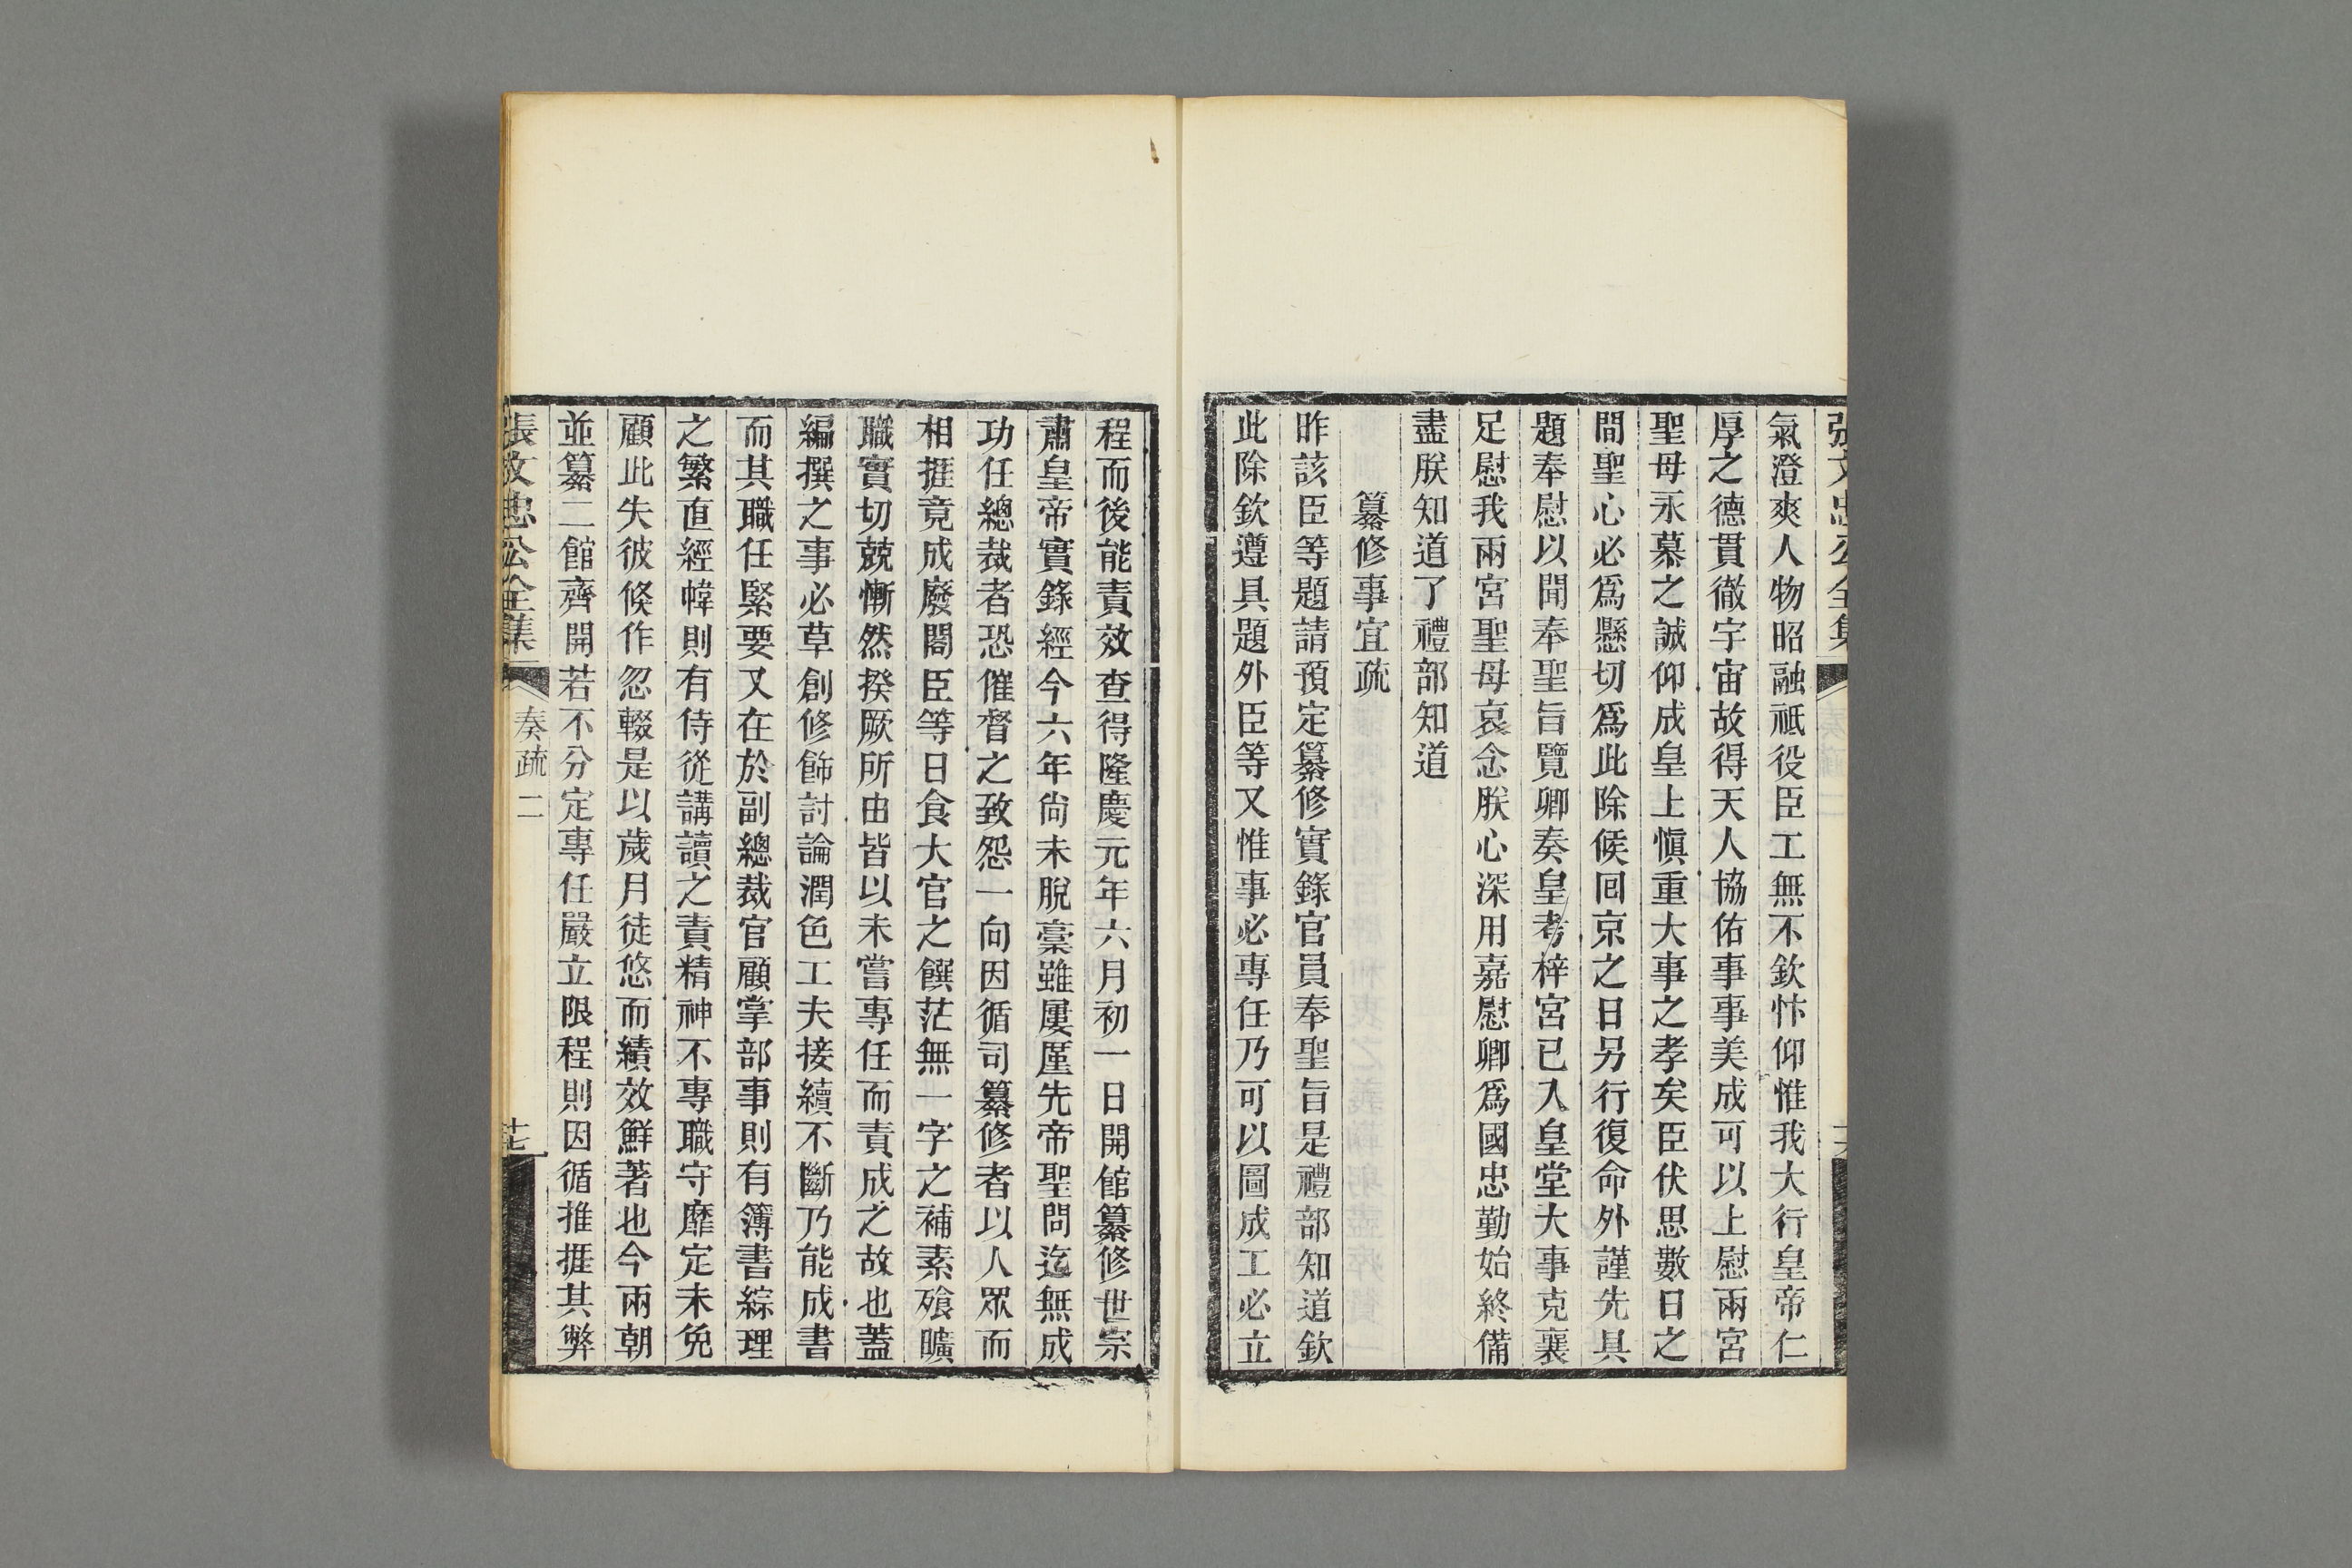 張文忠公全集
氣澄爽人物昭融祗役臣工無不欽忭仰惟我大行皇帝仁
厚之德貫徹宇宙故得天人協佑事事美成可以上慰兩宮
聖母永慕之誠仰成皇上愼重大事之孝矣臣伏思數日之
間聖心必爲懸切爲此除候囘京之日另行復命外謹先具
題奉慰以聞奉聖旨覽卿奏皇考梓宮已入皇堂大事克襄
足慰我兩宮聖母哀念朕心深用嘉慰卿爲國忠勤始終備
盡朕知道了禮部知道
纂修事宜疏
昨該臣等題請預定纂修實錄官員奉聖旨是禮部知道欽
此除欽遵具題外臣等又惟事必專任乃可以圖成工必立
程而後能責效查得隆慶元年六月初一日開館纂修世宗
肅皇帝實錄經今六年尙未脫稾雖屢厪先帝聖問迄無成
功任總裁者恐催督之致怨一向因循司纂修者以人眾而
相捱竟成廢閣臣等日食大官之饌茫無一字之補素飱曠
職實切兢慚然揆厥所由皆以未嘗專任而責成之故也蓋
編撰之事必草創修飾討論潤色工夫接續不斷乃能成書
而其職任緊要又在於副總裁官顧掌部事則有簿書綜理
之繁直經幃則有侍從講讀之責精神不專職守靡定未免
顧此失彼倐作忽輟是以歲月徒悠而績效鮮著也今兩朝
並纂二館齊開若不分定專任嚴立限程則因循推捱其弊
張文忠公全集 奏疏二